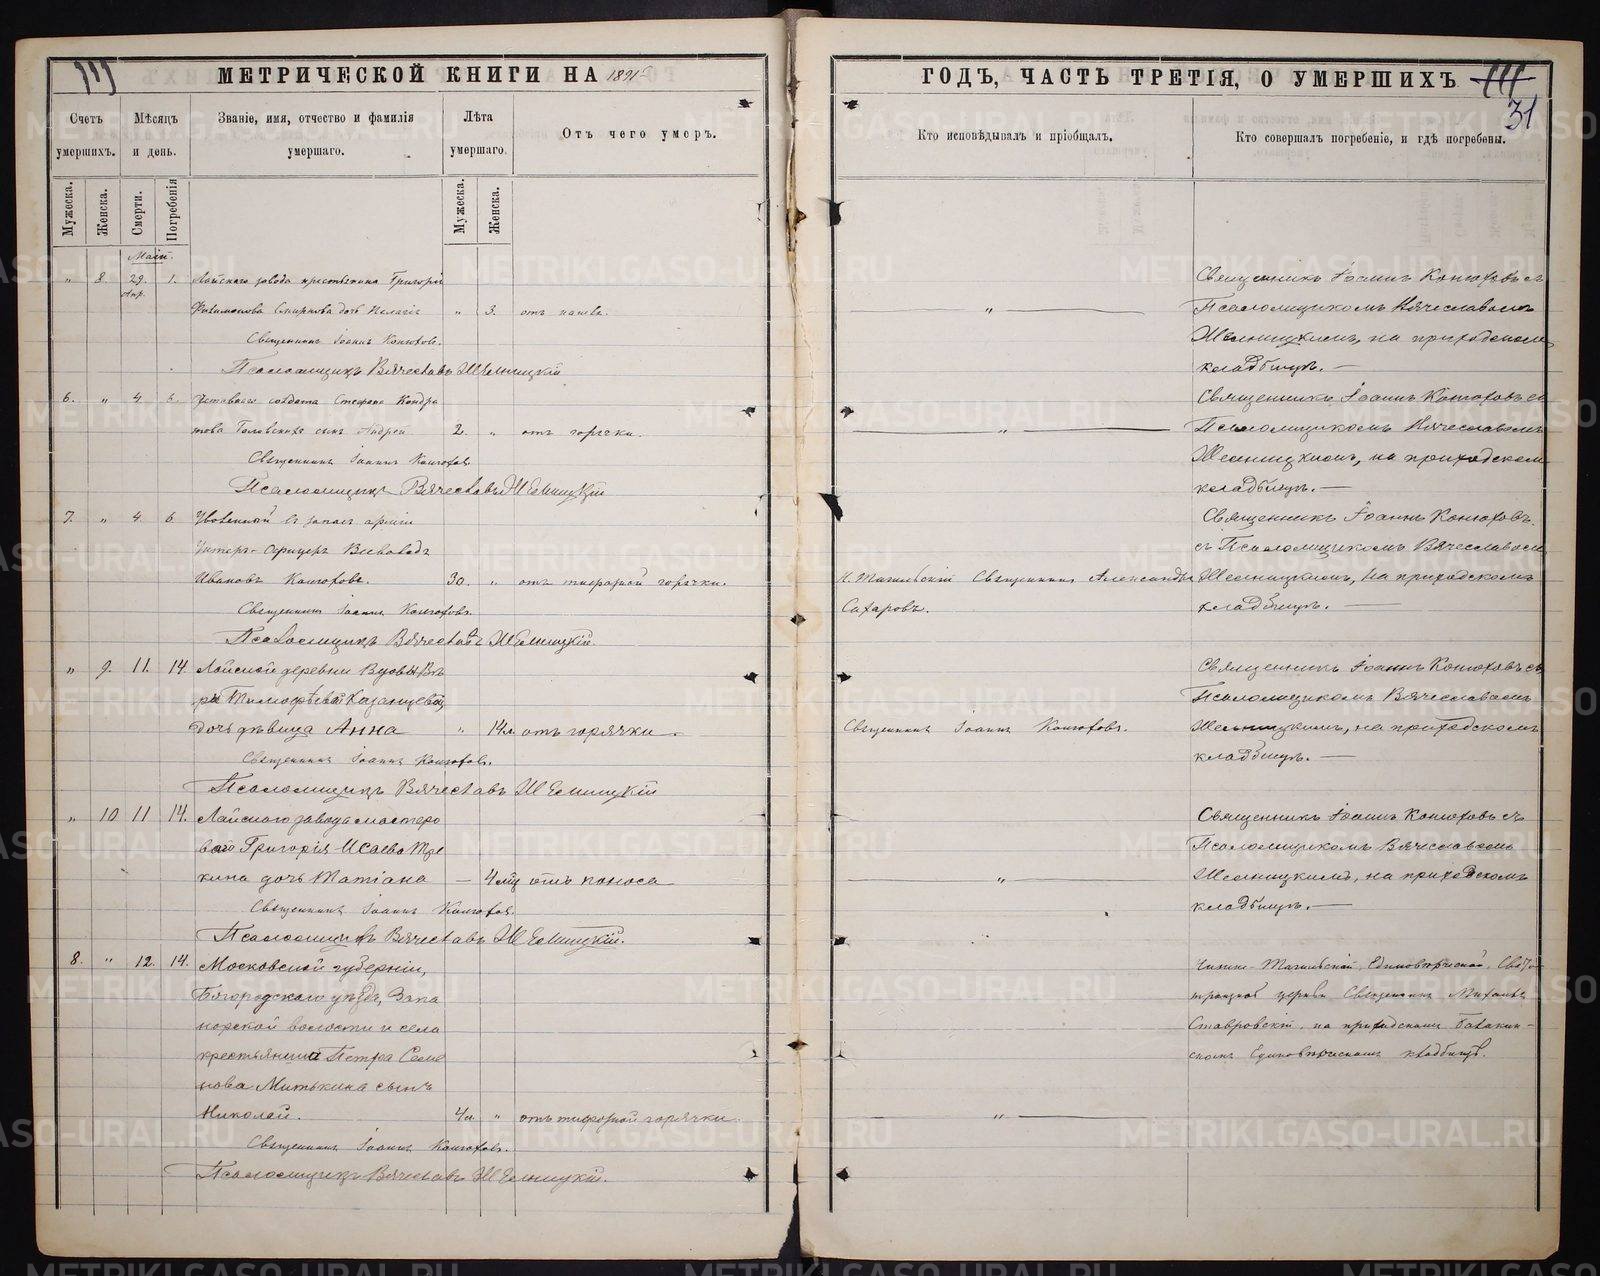 МЕТРИЧЕСКОЙ КНИГИ НА 1891
Счетъ умершихъ.
Мѣсяцъ и день.
Званіе, имя, отчество и фамилія умершаго.
Лѣта умершаго.
Отъ чего умеръ.
Мужеска.
Женска.
Смерти.
Погребенія
Мужеска.
Женска.
Маій.
„ 8. 29. 1. Лайскаго завода крестьянина Григорія
Апр.
Филимонова Смирнова дочь Пелагія „ 3. отъ кашля.
Священникъ Іоаннъ Конюховъ.
Псаломщикъ Вячеславъ
6. „ 4. 6. Отставнаго солдата Стефана Кондра
това сынъ Андрей 2. „ отъ горячки.
Священникъ Іоаннъ Конюховъ
Псаломщикъ Вячеславъ
7. „ 4. 6. Уволенный въ запасъ арміи
Унтеръ-Офицеръ Всеволодъ
Ивановъ Конюховъ. 30. „ отъ тифозной горячки.
Священникъ Іоаннъ Конюховъ.
Псаломщикъ Вячеславъ
„ 9. 11. 14. Лайской деревни Вдовы Вѣ
ры Тимофѣевой Казанцевой,
дочь дѣвица Анна „ 14л. отъ горячки.
Священникъ Іоаннъ Конюховъ.
Псаломщикъ Вячеславъ
„ 10 11 14. Лайскаго завода мастеро
ваго Григорія Исаева
кина дочь Татіана — 4 мц отъ поноса
Священникъ Іоаннъ Конюховъ.
Псаломщикъ Вячеславъ
8. „ 12. 14. Московской губерніи,
Богородскаго уѣзда, Запо
норской волости и села
крестьянина Петра Семе
нова Митькина сынъ
Николай. 4л. „ отъ тифозной горячки.
Священникъ Іоаннъ Конюховъ.
Псаломщикъ Вячеславъ
ГОДЪ, ЧАСТЬ ТРЕТІЯ, О УМЕРШИХЪ
31
Кто исповѣдывалъ и пріобщалъ.
Кто совершалъ погребеніе, и гдѣ погребены.
Священникъ Іоаннъ Конюховъ съ
„ Псаломщикомъ Вячеславомъ
на приходскомъ
кладбищѣ.
Священникъ Іоаннъ Конюховъ съ
„ Псаломщикомъ Вячеславомъ
на приходскомъ
кладбищѣ.
Священникъ Іоаннъ Конюховъ.
съ Псаломщикомъ Вячеславомъ
Н. Тагильскій Священникъ Александръ на приходскомъ
Сахаровъ. кладбищѣ.
Священникъ Іоаннъ Конюховъ съ
Псаломщикомъ Вячеславомъ
Священникъ Іоаннъ Конюховъ. на приходскомъ
кладбищѣ.
Священникъ Іоаннъ Конюховъ съ
Псаломщикомъ Вячеславомъ
„ на приходскомъ
кладбищѣ.
Нижне-Тагильской Единовѣрческой Свято-
троицкой церкви Священникъ Михаилъ
Ставровскій на приходскомъ
скомъ Единовѣрческомъ кладбищѣ.
„
METRIKI.GASO-URAL.RU